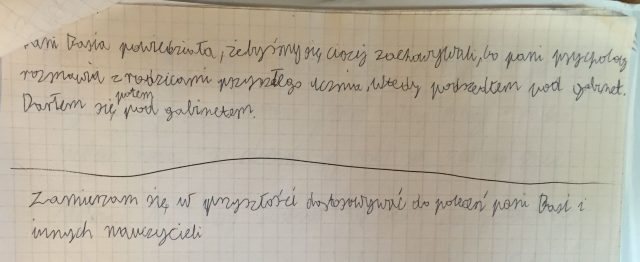 Pani Basia powiedziała, żebyśmy się ciszej zachowywali, bo pani psycholog
rozmawia z rodzicami przyszłego ucznia, wtedy podszedłem pod gabinet.
Darłem się potem pod gabinetem.
Zamierzam się w przyszłości dostosowywać do poleceń pani Basi i
innych nauczycieli